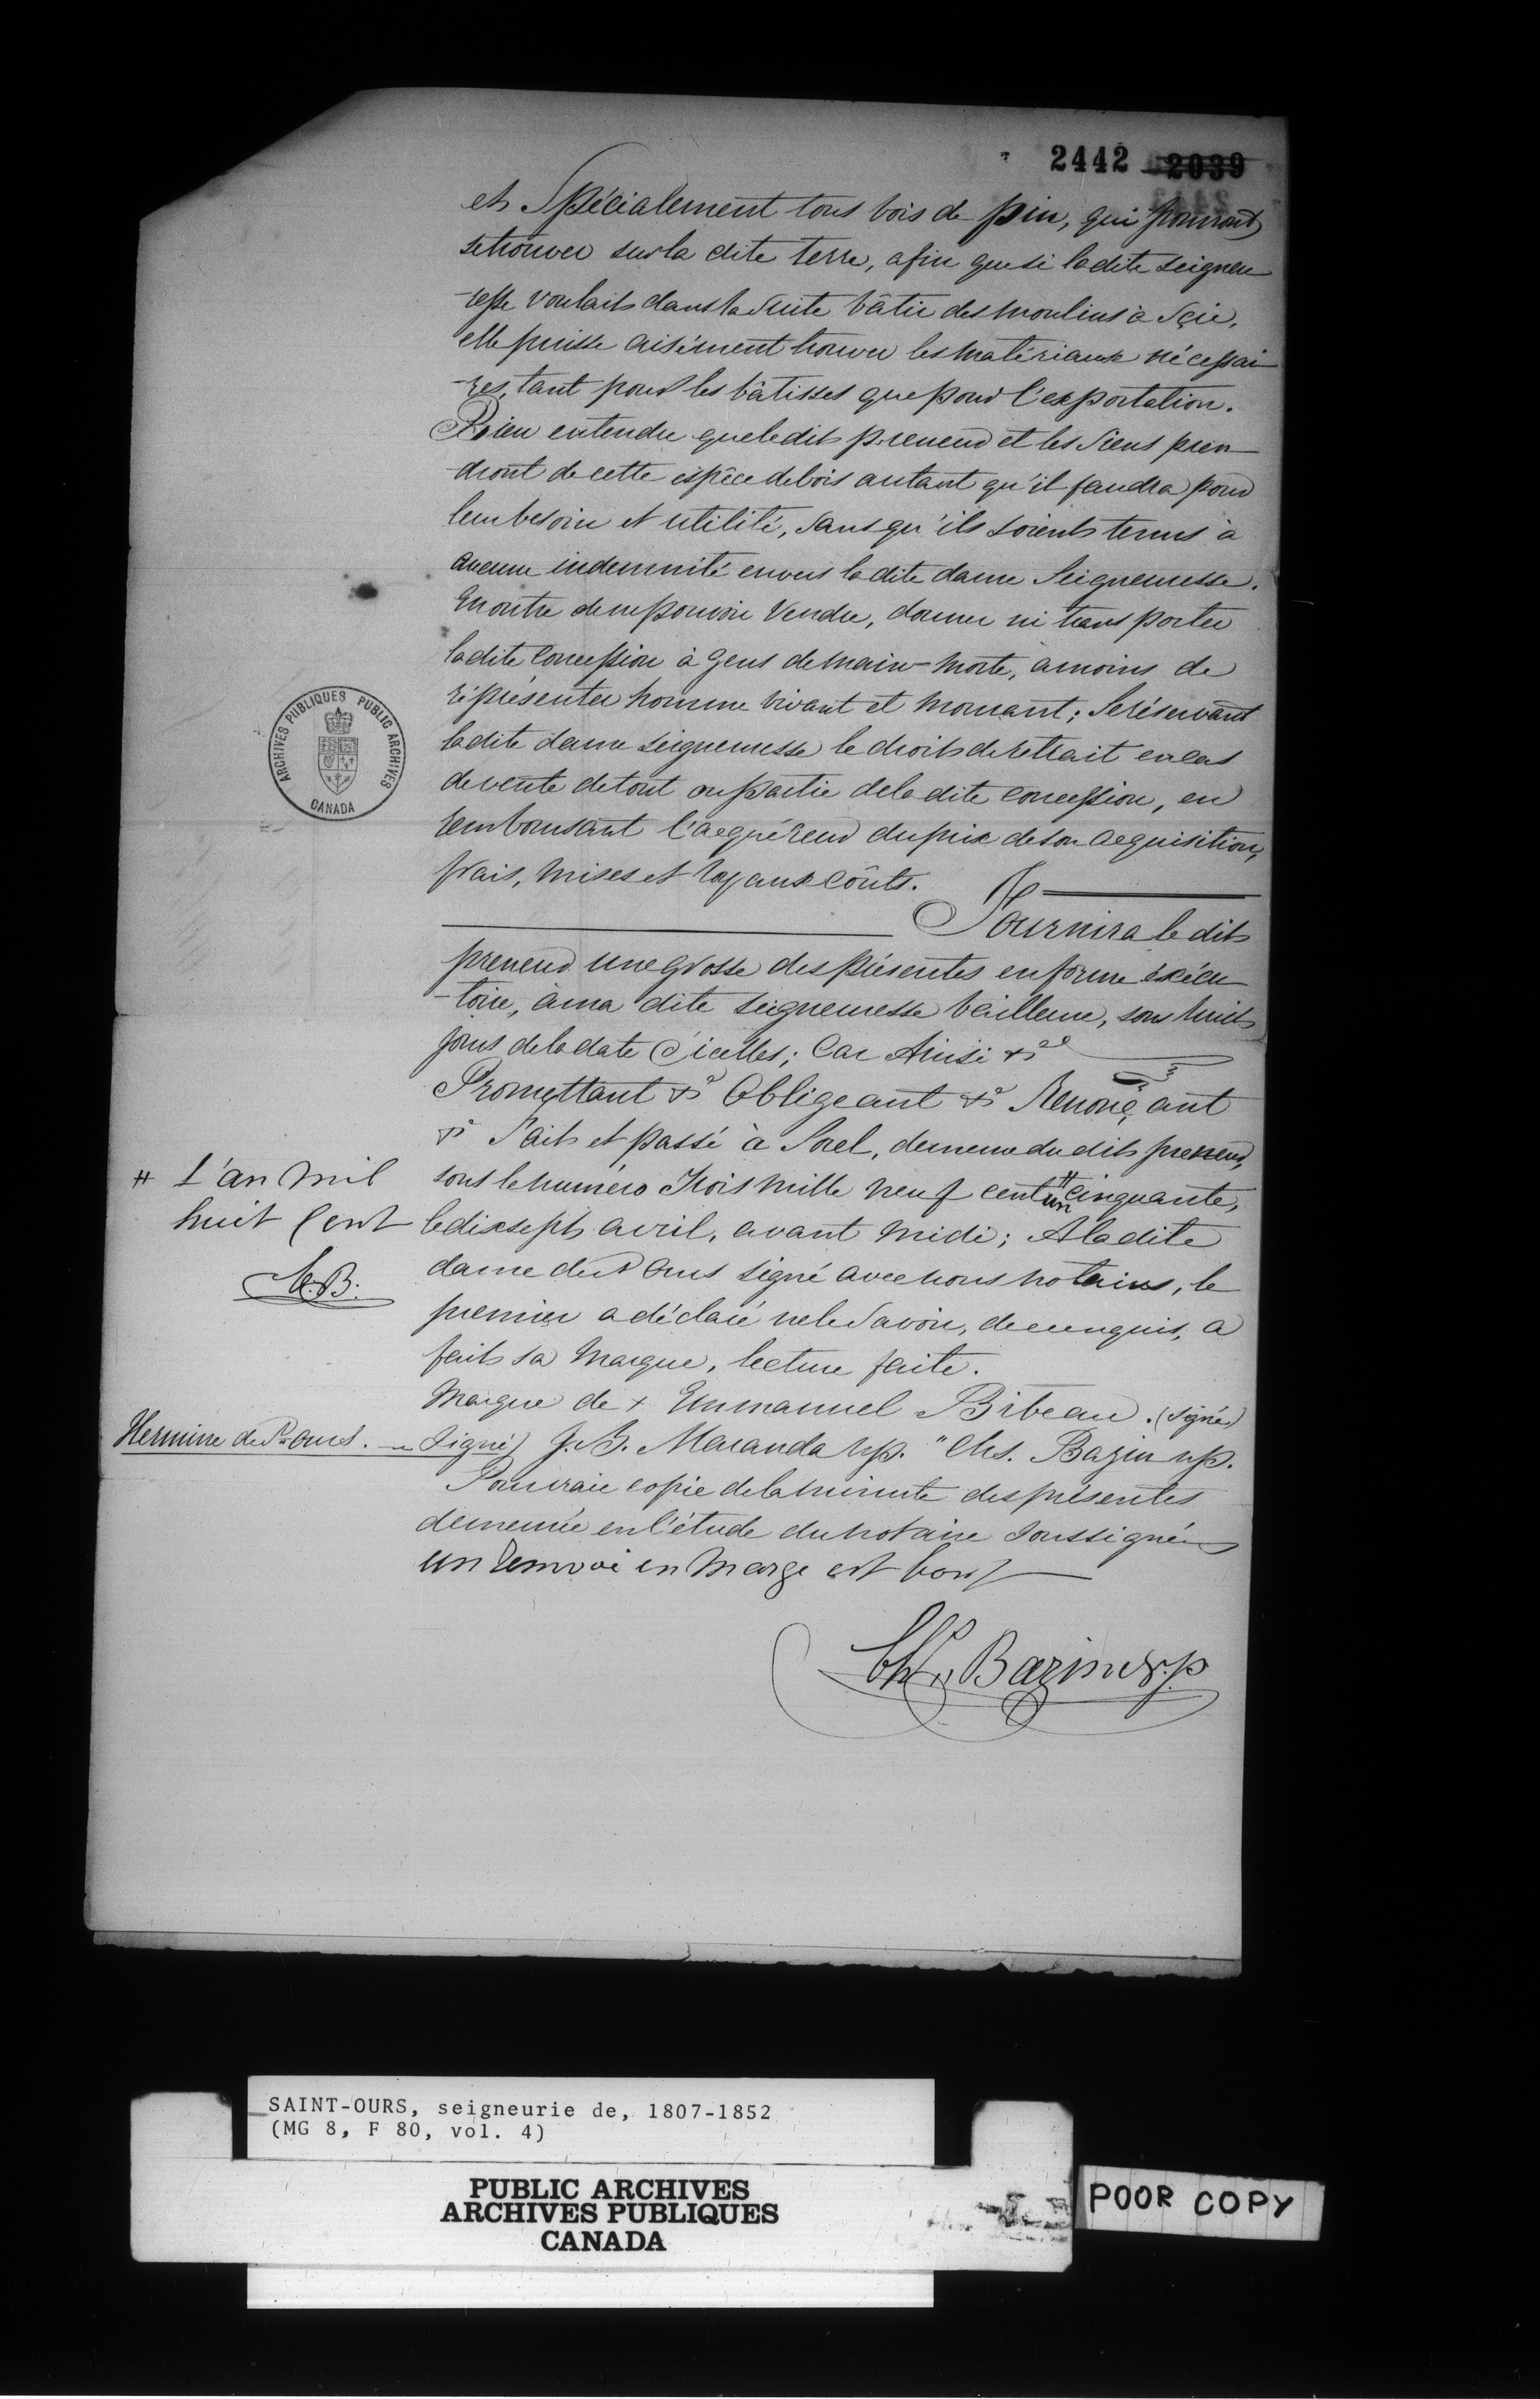 2442 2039
et Spécialement tous bois de pin, qui pourront
se trouver sur la dite terre, afin que si la dite seigneu
-resse voulait dans la suite bâtir des moulins à scie,
elle puisse aisément trouver les matériaux nécessai
-res, tant pour les bâtisses que pour l'exportation.
Bien entendu que le dit preneur et les siens pren
dront de cette espèce de bois autant qu'il faudra pour
leur besoin et utilité, sans qu'ils soient tenus à
aucune indemnité envers la dite dame Seigneuresse.
En outre de ne pouvoir vendre, donner ni transporter
la dite concession à gens de main-morte, à moins de
représenter homme vivant et mourant; Se réservant
la dite dame seigneuresse le droit de retrait en cas
de vente de tout ou partie de la dite concession, en
remboursant l'acquéreur du prix de son acquisition,
frais, mises et loyaux coûts.
Fournira le dit
preneur une grosse des présentes en forme exécu
-toire, à ma dite seigneuresse bailleure, sous huit
jours de la date d'icelles; Car Ainsi &ca
Promettant &ca Obligeant &ca Renonçant
&ca Fait et passé à Sorel, demeure du dit preneur,
sous le numéro trois mille neuf cent un # cinquante,
# L'an mil
huit Cent
C.B.
le dix sept avril, avant midi; A la dite
dame de St Ours signé avec nous notaires, le
premier a déclaré ne le savoir, de ce enquis, a
fait sa marque, lecture faite.
Marque de + Emmanuel Bibeau. (signé)
Hermine de St Ours. — Signé) J. B. Maranda n.p. " Chs. Bazin n.p.
Pour vraie copie de la minute des présentes
demeurée en l'étude du notaire soussigné
un renvoi en marge est bon /
Chs. Bazin n.p.
ARCHIVES PUBLIQUES PUBLIC ARCHIVES
CANADA
SAINT-OURS, seigneurie de, 1807-1852
(MG 8, F 80, vol. 4)
PUBLIC ARCHIVES
ARCHIVES PUBLIQUES
CANADA
POOR COPY